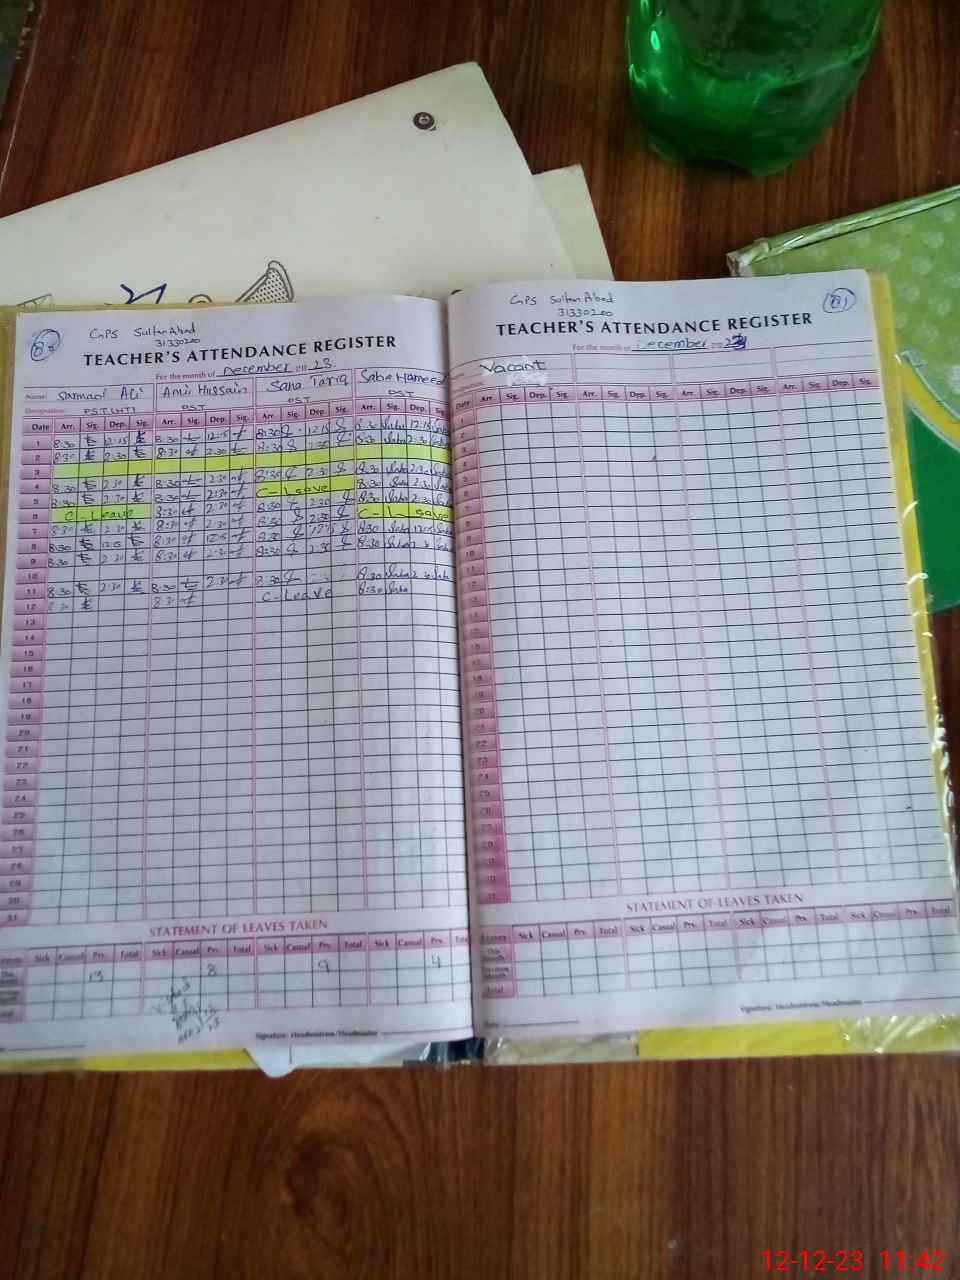 80
GPS Sultan Abad
31330200
TEACHER'S ATTENDANCE REGISTER
For the month of December 2023
Name: Sarmad Ali Amir Hussain Sana Tariq Saba Hameed
Designation: PST (HT) PST PST PST
Date Arr. Sig. Dep. Sig. Arr. Sig. Dep. Sig. Arr. Sig. Dep. Sig. Arr. Sig. Dep. Sig.
1 8:30 12:15 8:30 12:15 8:30 12:15 8:30 Saba 12:15 Saba
2 8:30 2:30 8:30 2:30 8:30 2:30 8:30 Saba 2:30 Saba
3
4 8:30 2:30 8:30 2:30 8:30 2:30 8:30 Saba 2:30 Saba
5 8:30 2:30 8:30 2:30 C-Leave 8:30 Saba 2:30 Saba
6 C-Leave 8:30 2:30 8:30 2:30 8:30 Saba 2:30 Saba
7 8:30 2:30 8:30 2:30 8:30 2:30 C-Leave
8 8:30 12:15 8:30 12:15 8:30 12:15 8:30 Saba 12:15 Saba
9 8:30 2:30 8:30 2:30 8:30 2:30 8:30 Saba 2:30 Saba
10
11 8:30 2:30 8:30 2:30 8:30 8:30 Saba 2:30 Saba
12 8:30 8:30 C-Leave 8:30 Saba
13
14
15
16
17
18
19
20
21
22
23
24
25
26
27
28
29
30
31
STATEMENT OF LEAVES TAKEN
Sick Casual Prv. Total Sick Casual Prv. Total Sick Casual Prv. Total Sick Casual Prv. Total
13 8 9 4
Signature: Headmistress/Headmaster
81
GPS Sultan Abad
31330200
TEACHER'S ATTENDANCE REGISTER
For the month of December 2023
Vacant
Date Arr. Sig. Dep. Sig. Arr. Sig. Dep. Sig. Arr. Sig. Dep. Sig. Arr. Sig. Dep. Sig.
STATEMENT OF LEAVES TAKEN
Leaves Sick Casual Prv. Total Sick Casual Prv. Total Sick Casual Prv. Total Sick Casual Prv. Total
This Month
Previous Month
Total
Signature: Headmistress/Headmaster
12-12-23 11:42